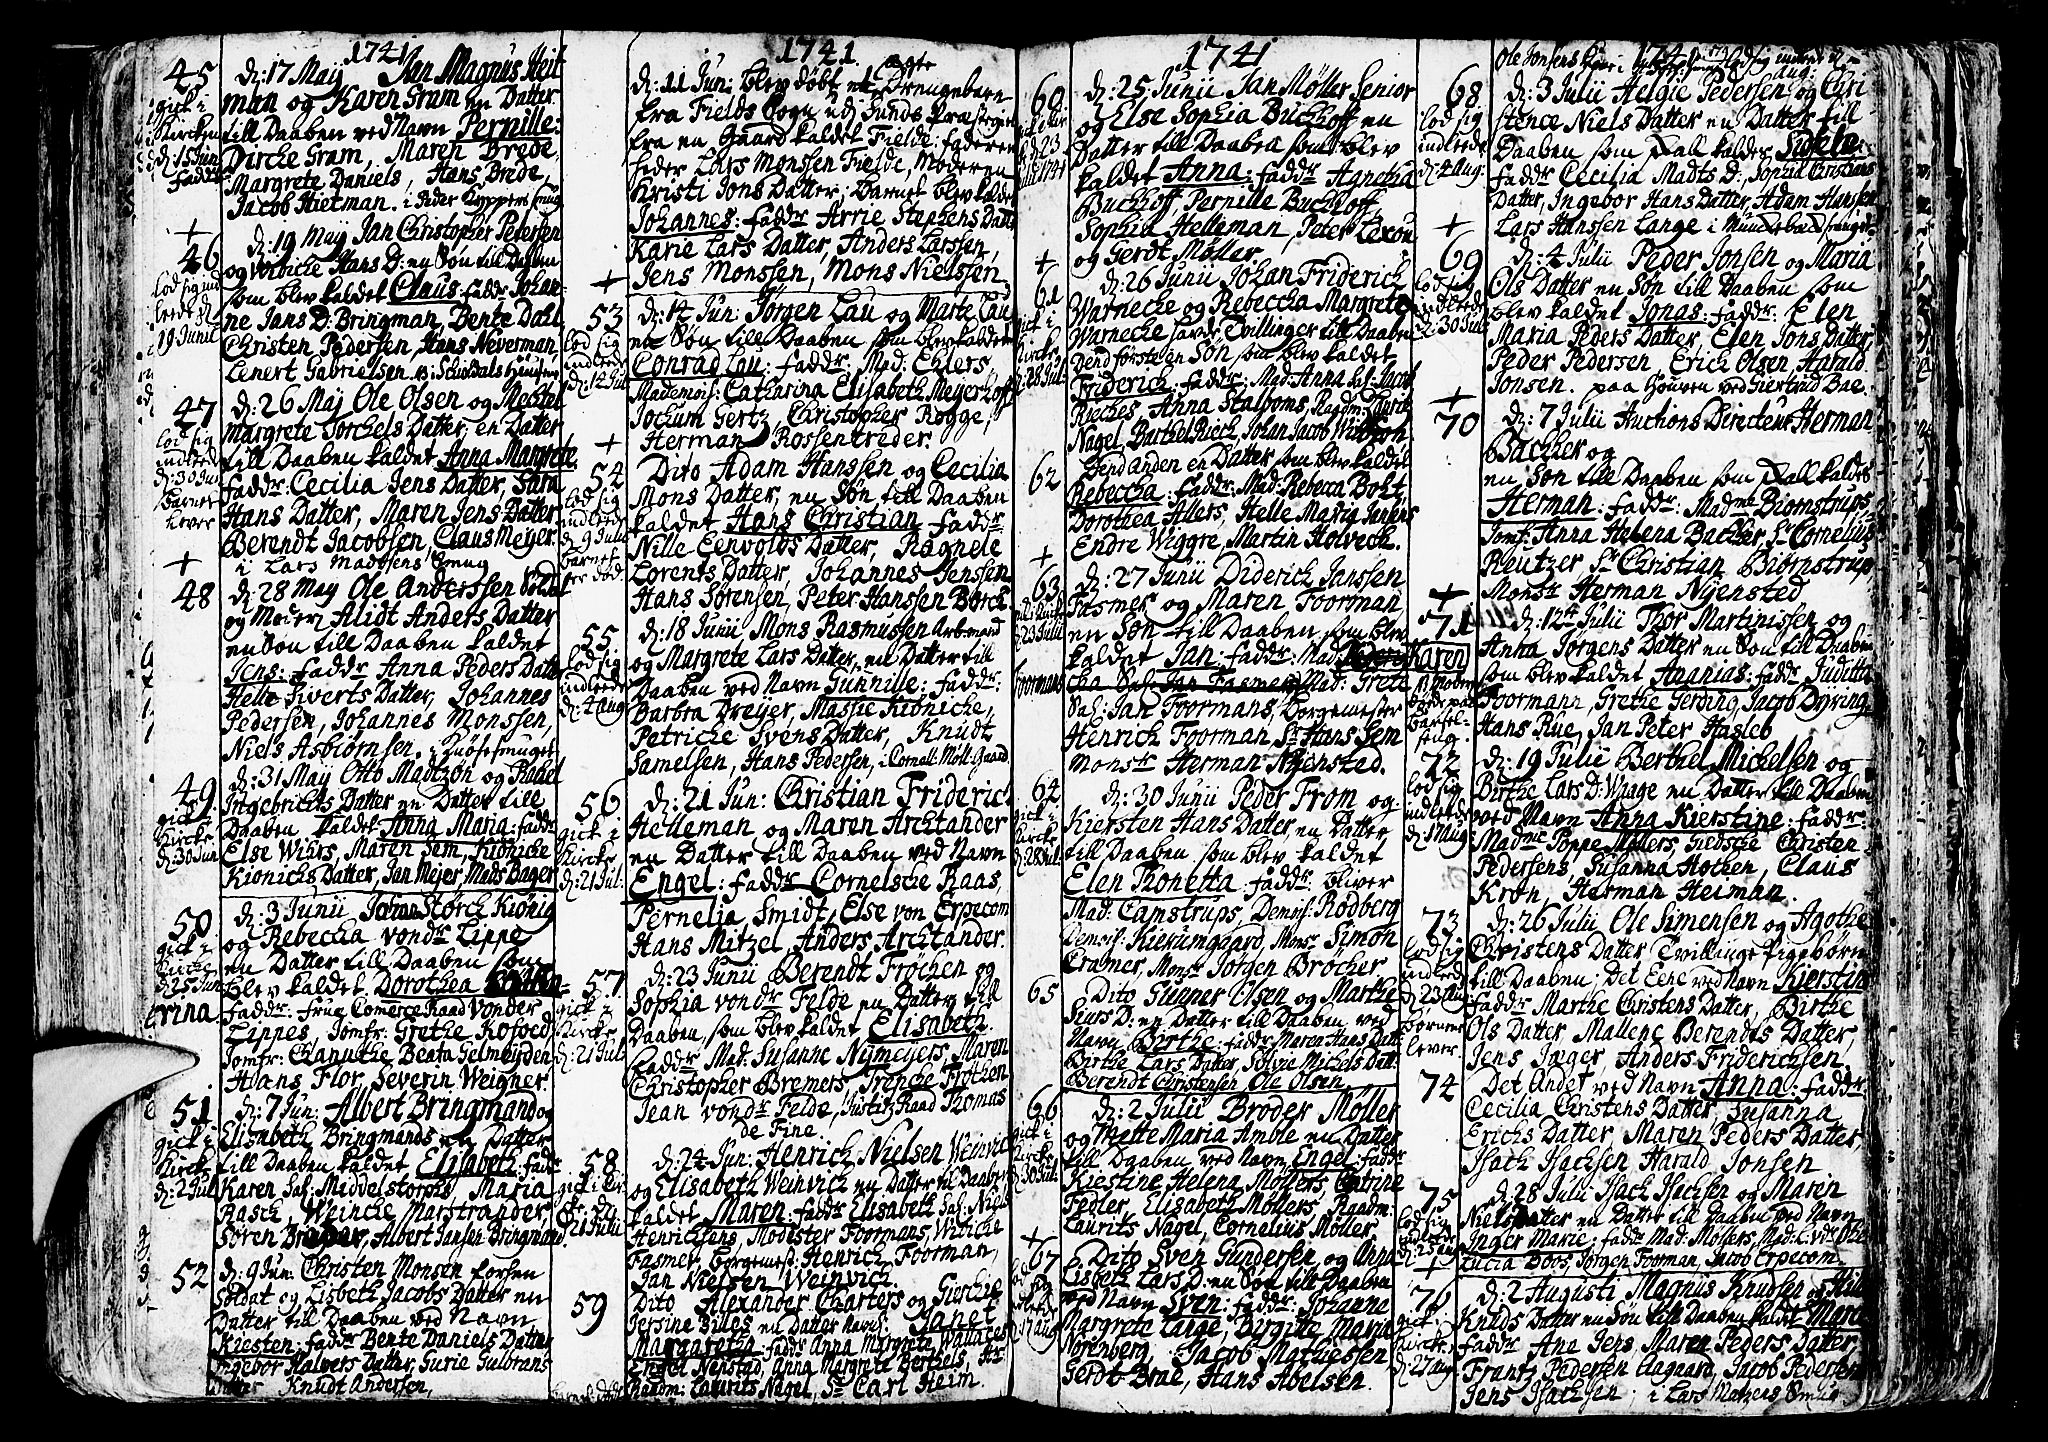 1741
45
gick i
Kircken
d: 15 Jun
d: 17 May Jan Magnus Heit
man og Karen Gram en Datter
till Daaben ved Navn Pernille:
Dircke Gram, Maren Brede,
Margrete Daniels, Hans Brede,
Jacob Hietman. i Peder Kyppers smug
+
46
lod sig ind
leede d
19 Junii
d: 19 May Jan Christopher Pedersen
og Wibicke Hans D: en Søn till Daaben
som blev kaldet Claus fadd: Johan-
ne Jans D: Bringman, Bente Dahl
Christen Pedersen, Hans Neverman,
Lenert Gabrielsen
47
lod sig
indleede
d: 30 Jun
Barnet
Lever
d: 26 Maj Ole Olsen og Mechtel
Margrete Torchels Datter, en Datter
till Daaben kaldet Anna Margrete
fadd: Cecilia Jens Datter, Sara
Hans Datter, Maren Jens Datter
Berendt Jacobsen, Claus Meyer.
i Lars Madssens Smug
+
48
d: 28 May Ole Anderssen Soldat
og Moderen Alidt Anders Datter
en Søn till Daaben kaldet
Jens: fadd: Anna Peders Datter
Helle Siverts Datter, Johannes
Pedersen, Johannes Monssen,
Niels Asbiørnsen, i Knøsesmuget
49
gick i
Kircke
d: 30 Jun
d: 31 May Otto Madtzon og Rahel
Ingebrichts Datter en Datter till
Daaben kaldet Anna Maria: fadd:
Else Wihrs, Maren Sem, Kionicke
Kionichs Datter, Jan Mejer, Mads Bager
50
gick i
Kircke
d: 25 Jun
d: 3 Junii Johan Storck Kiönig
og Rebeccha vond: Lippe
en Datter till Daaben som
blev kaldet Dorothea
erina
fadd: Frue Comerce Raad Vonder
Lippes Jomfr: Grethe Kofoed
Jomfr: Beata Gelmeyden
Hans Flor, Severin Weigner
51
gick i
Kircke
d: 2 Jul
d: 7 Jun: Albert Bringmand og
Elisabeth Bringmands en Datter
till Daaben kaldet Elisabeth fadd:
Karen Sal: Middelstorphs, Maria
Rasck, Weincke Marstrander,
Søren Albert Jansen Bringmand
52
d: 9 Jun: Christen Monsen forsen
Soldat og Lisbeth Jacobs Datter en
Datter till Daaben ved Navn
Kiesten: fadd: Bente Daniels Datter
Ingebor Halvers Datter, Gurie Gulbrans
Datter Knudt Andersen,
1741.
d: 11 Jun: blev döbt et ægte Drengebarn
fra Fields Sogn udj Sunds Præstegield
fra en Gaard kaldet Fielde: faderen
heder Lars Monssen Fielde, Moderen
Kristi Jons Datter; Barnet blev kaldet
Johannes: fadd: Arrie Stephens Datter
Karie Lars Datter, Anders Larssen,
Jens Monssen, Mons Nielssen
+
53
lod sig
indleede
d: 12 Jul
d: 14 Jun: Jörgen Lau og Marte Lau
en Søn till Daaben som blev kaldet
Conrad Lau: fadd: Mad: Ehlers,
Mademois: Catharina Elisabeth Meyerhoff
Jochum Gertz, Christopher Rogge,
Herman Rossentrider.
+
54
lod sig
indleede
d: 9 Julii
barnet
er död
Dito Adam Hanssen og Cecilia
Mons Datter, en Søn till Daaben
kaldet Hans Christian fadd:
Nille Eenvolds Datter, Ragnele
Lorents Datter, Johannes Jenssen
Hans Sørensen, Peter Hanssen Borck
55
lod sig
indleede
d: 4 Aug
d: 18 Junii Mons Rasmussen Arb: mand
og Margrete Lars Datter, en Datter till
Daaben ved Navn Gunnille: fadd:
Barbra Dreyer, Massie Kionicke,
Petricke Ivens Datter, Knudt
Samelsen, Hans Pedersen, i Cornell: Möll: Gaard
56
gick i
Kircke
d: 21 Jul:
d: 21 Jun: Christian Friderich
Helleman og Maren Archtander
en Datter till Daaben ved Navn
Engel: fadd: Cornelsche Raas,
Pernelia, Smidt, Else von Erpecom
Hans Mitzel, Anders Archtander.
57
gick i
Kircke
d: 21 Jul:
d: 23 Junii Berendt Fröchen og
Sophia vond: Felde en Datter till
Daaben, som blev kaldet Elisabeth.
fadd: Mad: Susanne Nijmeyers, Maren
Christopher Bremers, Irencke Frøchen
Jean vond: Felde, Justitz Raad Thomas
de Fine.
58
gick i Kir
ke d:
21 Julii
d: 24 Jun: Henrich Nielsen Weinvich
og Elisabeth Weinvich en Datter til Daaben
kaldet Maren: fadd: Elisabeth Sal: Niels
Henrichsens, Modester Foormans, Wencke
Fasmer, borgemest: Henrich Foorman,
Jan Nielsen Weinvich.
59
Dito Alexander Charters og Gierchie
Jersine Billes en Datter Navn: Janet
Margaretha: fadd: Anna Margrete Wallaces
Engel Nenstad, Anna Margrete Berthels, Hr
Raadm: Laurits Nagel, Sr Carl Heim.
1741
60
gick i Kir
ke d: 23
Julii 1741
d: 25 Junii Jan Møller Senior
og Else Sophia Buchhoff en
Datter till Daaben som blev
kaldet Anna: fadd: Agnetha
Buchhoff, Pernille Buchhoff
Sophia Helleman, Peter Lexou
og Gerdt Møller.
+
61
gick i
Kircke
d: 28 Jul:
d: 26 Junii Johan Friderich
Warnecke og Rebeccha Margrete
Warnecke havde Tvillinger till Daaben
Dend første en Søn som blev kaldet
Friderich: fadd: Mad: Anna Sal: Jacob
Rieckes Anna Stalboms, Raadm: Laurits
Nagel, Barthel Rieck, Johan Jacob
62
Dend anden en Datter som blev kaldet
Rebeccha: fadd: Mad: Rebecca Boht,
Dorothea Ahlers, Helle Maria Jansens
Endre Wiggre, Martin Holveck.
+
63
gick i Kircke
d: 23 Julii
d: 27 Junii Diderich Janssen
Fasmer og Maren Foorman
en Søn till Daaben som blev
kaldet Jan: fadd: Mad:
Foormans
Mad: Grete
Sal: Jan Foormans, Borgemester
Henrich Foorman, Sr Hans Sem
Monsr Herman Nyenstad.
64
gick i
Kircke
d: 28 Jul:
d: 30 Junii Peder From og
Kiersten Hans Datter, en Datter
till Daaben som blev kaldet
Elen Thonetta: fadd: bliver
Mad: Camstrups, Demois: Rodberg
Demois: Kierumgaard, Monsr Simon
Cramer, Monsr Jörgen Bröcher
65
Dito Gunner Olsen og Marthe
Siurs D: en Datter till Daaben ved
Navn Birthe: fadd: Maren Hans Datt
Birthe Lars Datter, Solvie Michels Datt:
Berendt Christensen Ole Olsen
66
gick i
Kircke
d: 30 Jul:
d: 2 Julii Broder Møller
og Mette Maria Amble en Datter
till Daaben ved Navn Engel: fadd:
Kiestine Helena Møllers, Catrine
Fedler, Elisabeth Møllers, Raadm:
Laurits Nagel, Cornelius Møller
+
67
lod sig
indleede
d: 17 Aug
Dito Sven Gundersen og Anna
Lisbeth Lars D: en Søn till Daaben
ved Navn Sven: fadd: Johanne
Margrete Lange, Birgitte Maria
Norenberg, Jacob Mathiessen
Gerdt Brae, Hans Abelsen.
68
lod sig
indleede
d: 4 Aug:
d: 3 Julii Helgie Pedersen og Chri
stence Niels Datter en Datter till
Daaben som skall kaldes Sidsele:
fadd: Cecilia Madts D:, Sophia Christians
Datter, Ingebor Hans Datter, Adam Hansen
Lars Hanssen Lange
+
69
lod sig
indleede
d: 30 Jul:
d: 4 Julii Peder Jonsen og Maria
Ols Datter en Søn till Daaben som
blev kaldet Jonas: fadd: Elen
Maria Peders Datter, Elen Jons Datter,
Peder Pedersen Erich Olsen, Harald
Jonsen. paa Houven ved Giertrud Bae.
+
70
d: 7 Julii Auchons Directeur Herman
Bacher og
en Søn till Daaben som skall kaldes
Herman: fadd: Madme Biornstrups,
Jomf: Anna Helena Bacher, Sr Cornelius
Reutzer Sr Christian Biørnstrup
Monsr Herman Nyenstad
+
71
Karen
Moderen
døde paa
barsel-
seng.
d: 12te Julii Thor Martinissen og
Anna Jørgens Datter en Søn till Daaben
som blev kaldet Ananias: fadd: Juditha
Foormann, Grethe Gerding, Jacob Dyring
Hans Rue, Jan Peter Hasleb
72
lod sig
indleede
d: 17 Aug
d: 19 Julii Berthel Michelsen og
Birthe Lars D: Wnage en Datter till Daaben
ved Navn Anna Kierstine: fadd:
Madme Poppe Møllers, Giedsche Christen
Pedersens, Susanna Hothen, Claus
Krøn, Herman Heiman.
73
lod sig
indleede
d: 23 Aug
börnene
lever.
d: 26 Julii Ole Simensen og Agathe
Christens Datter Tvillinge Pigebörn
till Daaben; Det Eene ved Navn Kierstin
fadd: Marthe Christens Datter, Birthe
Ols Datter, Mallene Berendts Datter,
Jens Jæger, Anders Friderichsen.
74
Det Andet ved Navn Anna: fadd:
Cecilia Christens Datter, Susanna
Erichs Datter, Maren Peders Datter,
Isach Isachsen Harald Jonsen
75
lod sig
indleede
d: 23 Aug
d: 28 Julii Isach Isachsen og Maren
Niels Datter en Datter till Daaben ved Navn
Inger Marie: fadd: Mad: Møllers, Mad:
Lucia Döös, Jörgen Foorman, Jacob Erpecom.
+
76
gick i
Kircke
d: 27 Aug
d: 2 Augusti Magnus Knudsen og
Knuds Datter en Søn till Daaben kaldet
fadd: Ane Jens, Maren Peders Datter,
Frantz Pedersen Aagaard, Jacob Pedersen
Jens Isachsen; i Lars Matzens Smug